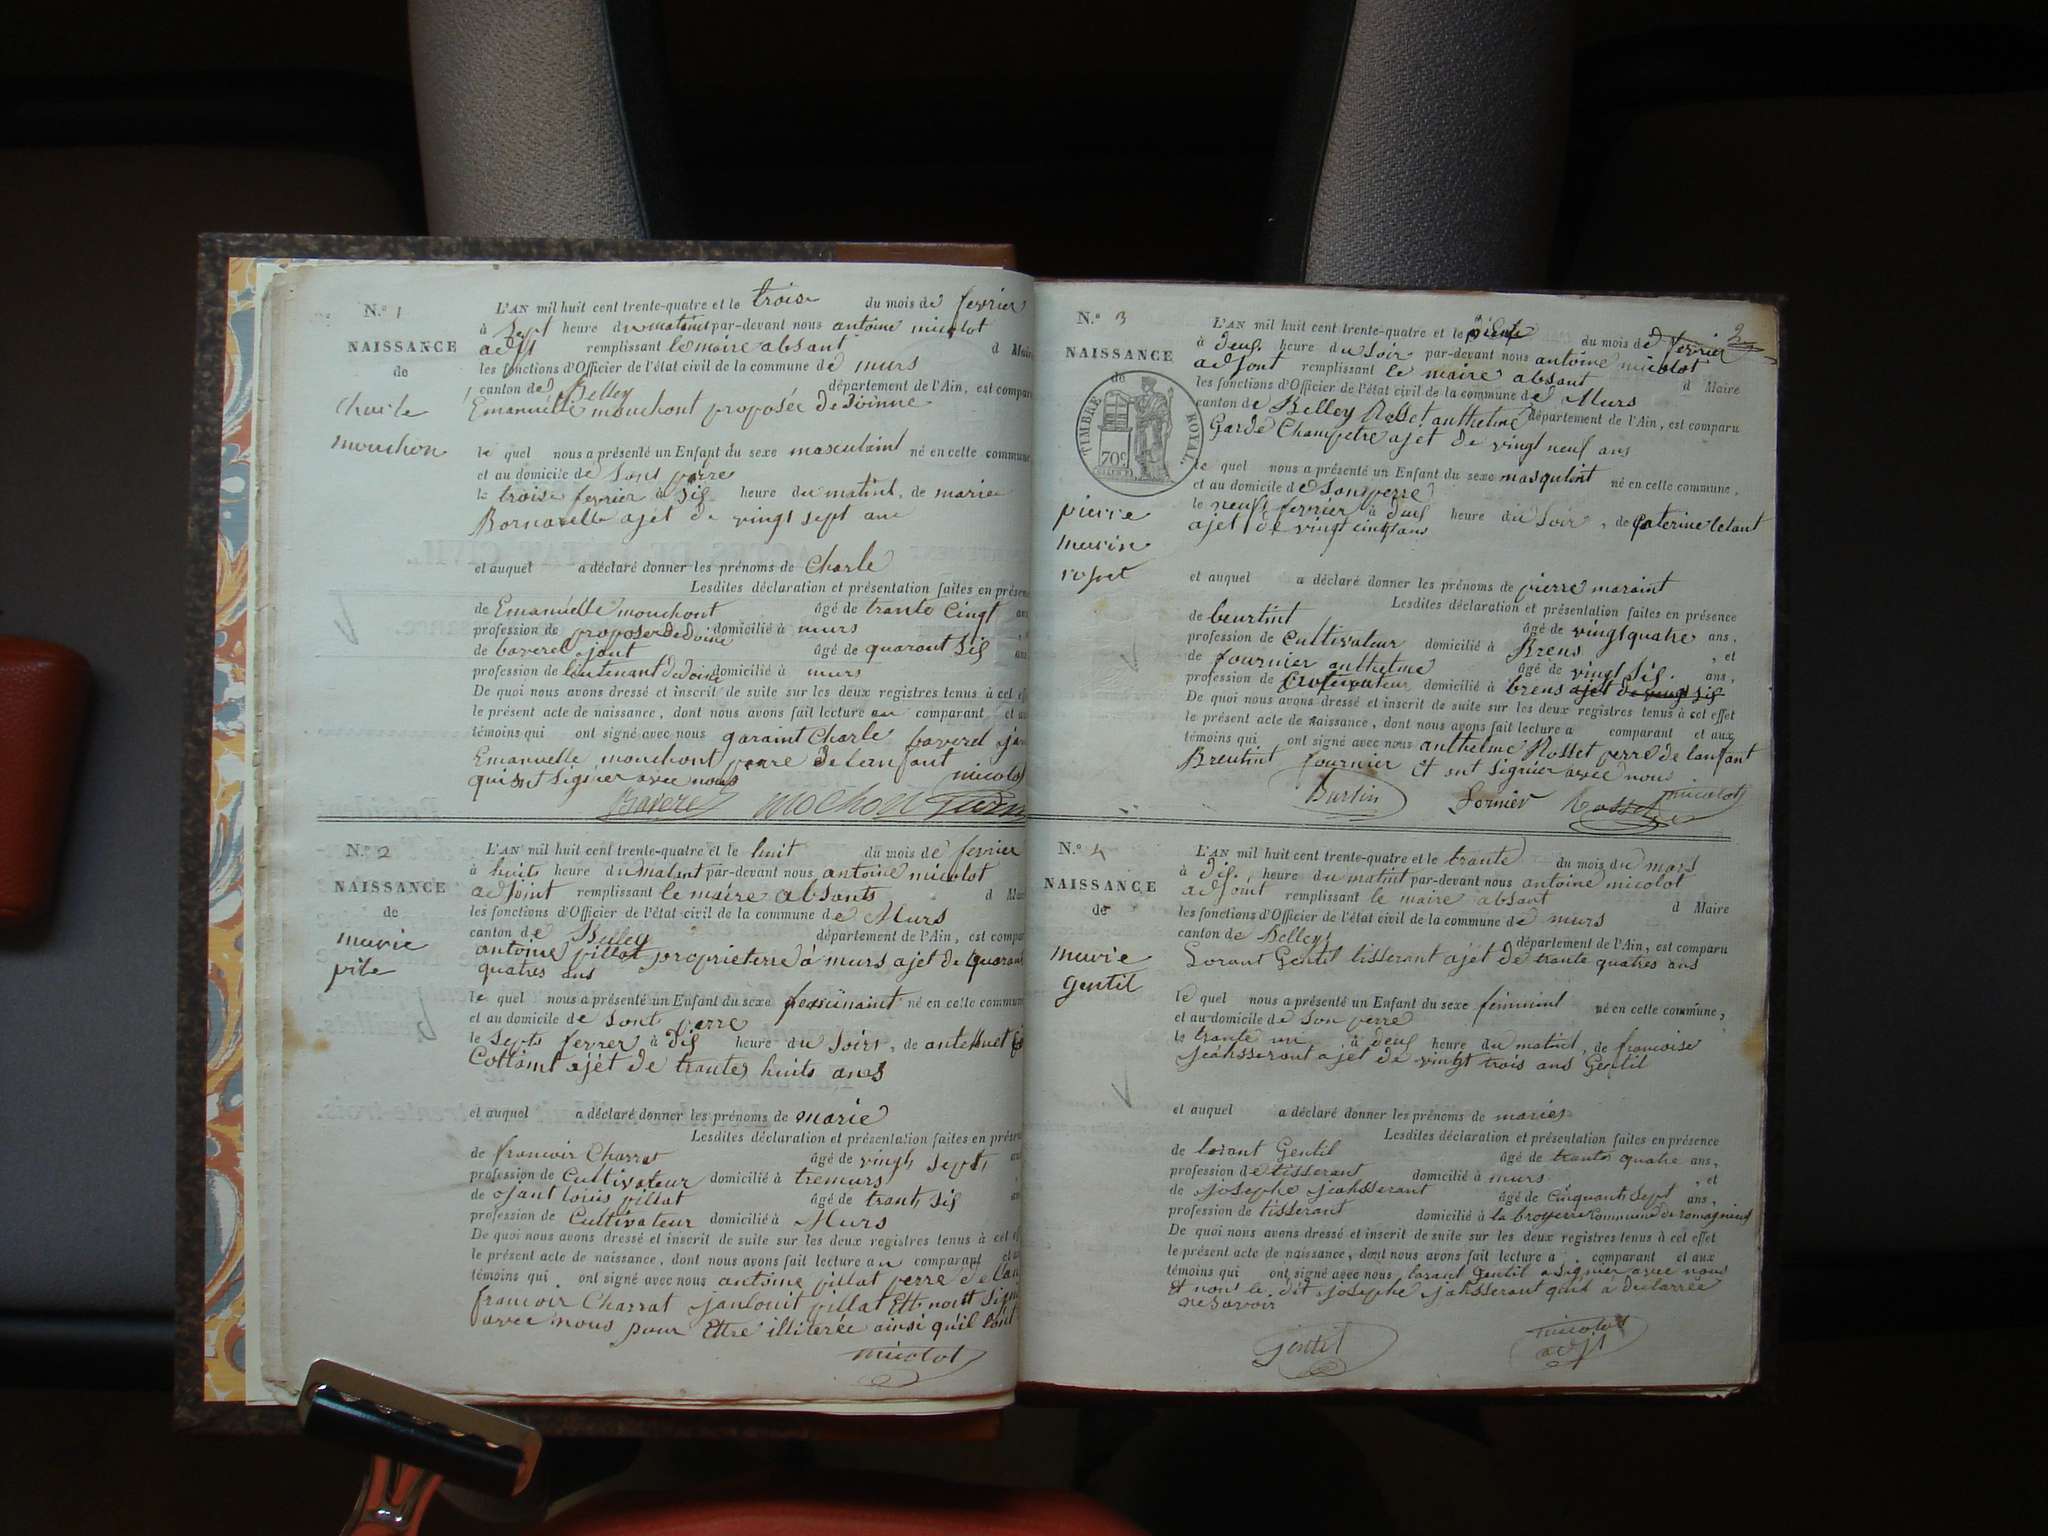 N.º 1
NAISSANCE
de
Charle
mouchon
L'AN mil huit cent trente-quatre et le troise du mois de fevrier
à Sept heure du matins par-devant nous antoine micolot
adjt remplissant le maire absant d Maire
les fonctions d'Officier de l'état civil de la commune de murs
canton de Belley département de l'Ain, est comparu
Emanuelle mouchont proposée de Doinne
le quel nous a présenté un Enfant du sexe masculaint né en cette commune
et au domicile de Sont perre
le troise fevrier à Dis heure du matint, de marie
ajet de vingt sept ans
et auquel a déclaré donner les prénoms de Charle
Lesdites déclaration et présentation faites en présen
de Emanuelle mouchont âgé de trante Cingt ans
profession de domicilié à murs
de baverel jant âgé de quarant Sis ans
profession de lieutenant de domicilié à murs
De quoi nous avons dressé et inscrit de suite sur les deux registres tenus à cet eff
le présent acte de naissance, dont nous avons fait lecture au comparant et au
témoins qui ont signé avec nous Charle baverel
Emanuelle mouchont perre de Lenfant micolot
qui snt signier avec nous
N.º 2
NAISSANCE
de
marie
pile
L'AN mil huit cent trente-quatre et le huit du mois de fevrier
à huits heure du matant par-devant nous antoine micolot
adjoint remplissant le maire absants d Maire
les fonctions d'Officier de l'état civil de la commune de Murs
canton de Belley département de l'Ain, est compar
antoine pillat proprieterre à murs ajet de quarant
quatres ans
le quel nous a présenté un Enfant du sexe né en cette commun
et au domicile de Sont perre
le Septs fevrer à dis heure du Soirs, de
Cottaint ajét de trantes huits ans
et auquel a déclaré donner les prénoms de marie
Lesdites déclaration et présentation faites en présen
de francoir Charrat âgé de vingts septs ans
profession de Cultivateur domicilié à tremurs
de jant louis pillat âgé de trant sis ans
profession de Cultivateur domicilié à Murs
De quoi nous avons dressé et inscrit de suite sur les deux registres tenus à cet eff
le présent acte de naissance, dont nous avons fait lecture au comparant et au
témoins qui ont signé avec nous antoine pillat perre de lan
francoir Charrat janlouit pillat Ett nontt signi
avec nous pour Ettre illiterée ainsi quil lont
micolot
N.º 3
2
NAISSANCE
de
TIMBRE ROYAL.
70c
pierre
marin
roset
L'AN mil huit cent trente-quatre et le du mois de fevrier
à deus heure du Soir par-devant nous antoine micolot
adjont remplissant le maire absant d Maire
les fonctions d'Officier de l'état civil de la commune de Murs
canton de Belley Rosset anthelme département de l'Ain, est comparu
Garde Champetre ajet de vingt neuf ans
le quel nous a présenté un Enfant du sexe masqulint né en cette commune,
et au domicile de Son perre
le neuf fevrier à deus heure du Soir, de Caterine letant
ajet de vingt cinq ans
et auquel a déclaré donner les prénoms de pierre maraint
Lesdites déclaration et présentation faites en présence
de beurtint âgé de vingt quatre ans,
profession de Cultivateur domicilié à Brens, et
de fournier anthelme âgé de vingt sis. ans,
profession de Cultivateur domicilié à brens ajet de vingt sis
De quoi nous avons dressé et inscrit de suite sur les deux registres tenus à cet effet
le présent acte de naissance, dont nous avons fait lecture a comparant et aux
témoins qui ont signé avec nous anthelme Rosset perre de lanfant
Breutint fournier et snt signier avec nous
Burtin Fornier Rosset micolot
N.º 4
NAISSANCE
de
marie
Gentil
L'AN mil huit cent trente-quatre et le trante du mois du mars
à dis, heure du matint par-devant nous antoine micolot
adjoint remplissant le maire absant d Maire
les fonctions d'Officier de l'état civil de la commune de murs
canton de Belley département de l'Ain, est comparu
Lorant Gentil tisserant ajet de trante quatres ans
le quel nous a présenté un Enfant du sexe feminint né en cette commune,
et au domicile de Son perre
le trante un à deus heure du matint, de francoise
jahsserant ajet de vingt trois ans Gentil
et auquel a déclaré donner les prénoms de maries
Lesdites déclaration et présentation faites en présence
de lorant Gentil âgé de trante quatre ans,
profession de tisserant domicilié à murs, et
de josephe jahsserant âgé de Cinquant Sept ans,
profession de tisserant domicilié à la broyerre Commune de romagnieu
De quoi nous avons dressé et inscrit de suite sur les deux registres tenus à cet effet
le présent acte de naissance, dont nous avons fait lecture a comparant et aux
témoins qui ont signé avec nous lorant Gentil a signier avec nous
et nont le dit josephe jahsserant quil a declarrée
ne savoir
Gentil micolot
adjt